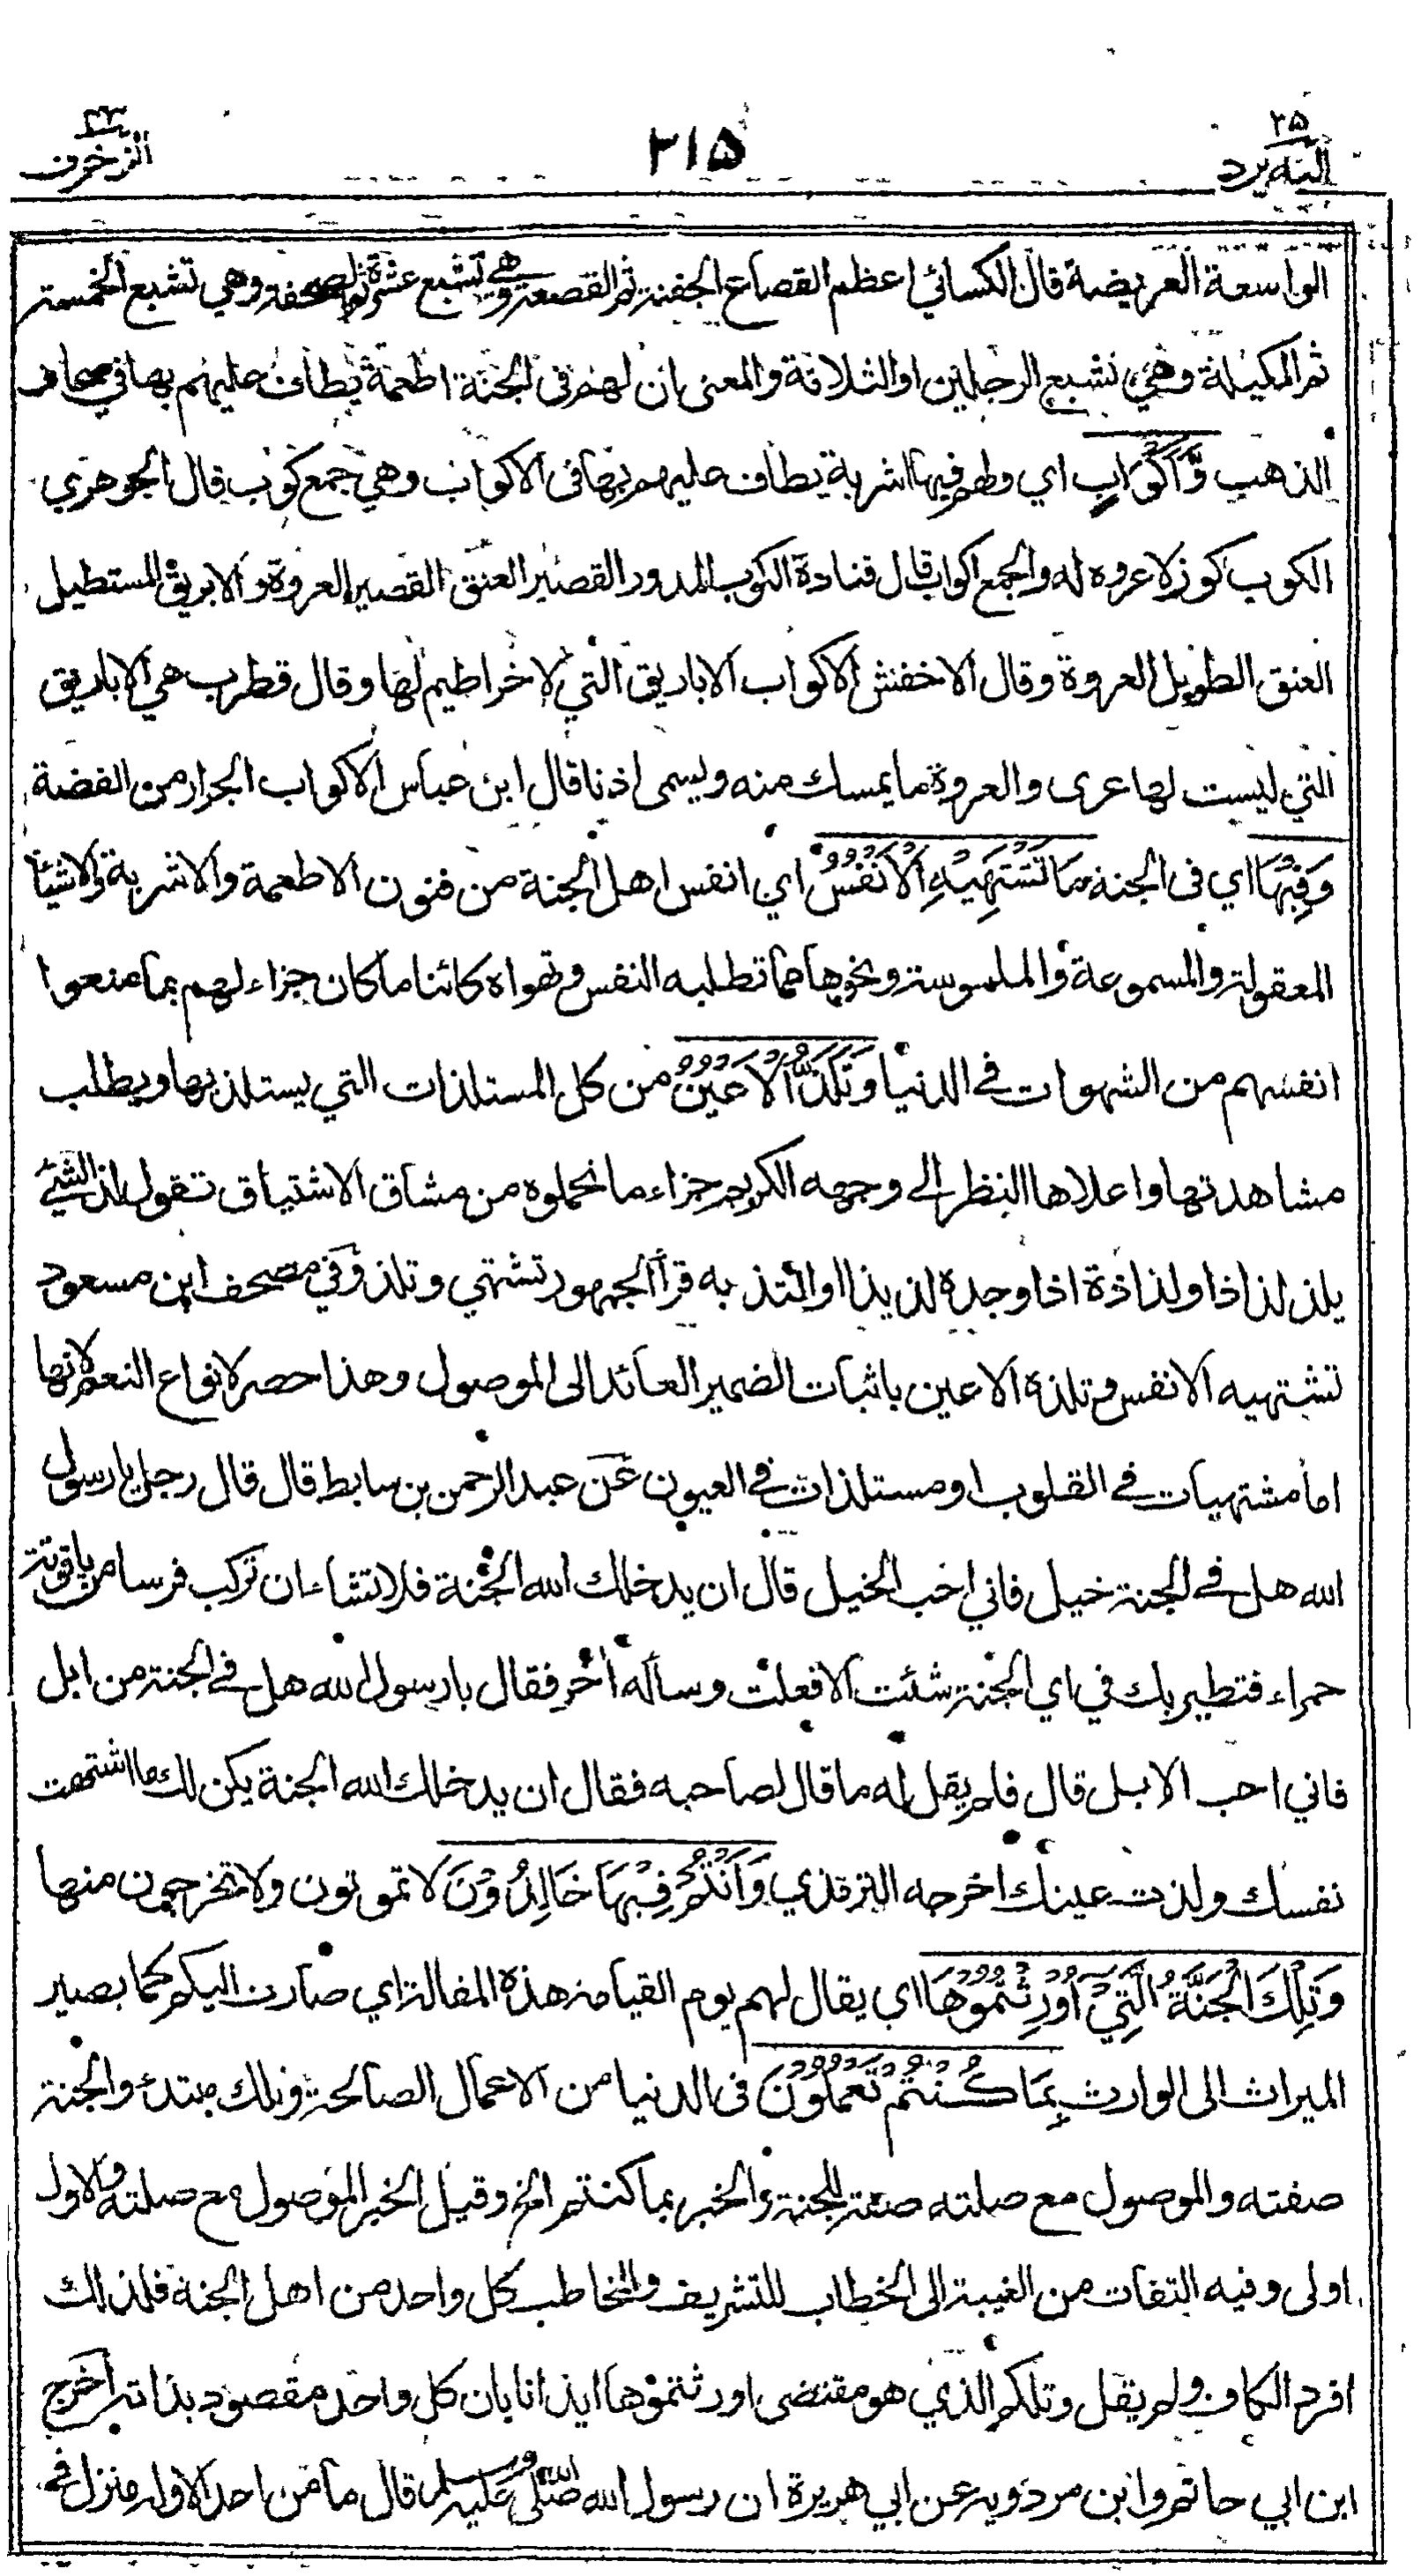 ٢٥
اليه يرد
٢١٥
٤٣
الزخرف
الواسعة العريضة قال الكسائي اعظم القصاع الجفنة ثم القصعة وهي تشبع عشرة ثم الصحفة وهي تشبع الخمسة
ثم المكيلة وهي تشبع الرجلين او الثلاثة والمعنى بان لهم في الجنة اطعمة يطاف عليهم بها في صحاف
الذهب وَّاَكْوَابٍ اي ولهم فيها اشربة يطاف عليهم بها في الاكواب وهي جمع كوب قال الجوهري
الكوب كوز لا عروه له والجمع اكواب قال قتادة الكوب المدور القصير العنق القصير العروة والابريق المستطيل
العنق الطويل العروة وقال الاخفش الاكواب الاباريق التي لا خراطيم لها وقال قطرب هي الاباريق
التي ليست لها عرى والعروة ما يمسك منه ويسمى اذنا قال ابن عباس الاكواب الجرار من الفضة
وَفِيْهَا اي في الجنة مَا تَشْتَهِيْهِ الْاَنْفُسُ اي انفس اهل الجنة من فنون الاطعمة والاشربة والاشياء
المعقولة والمسموعة والملموسة ونحوها مما تطلبه النفس وتهواه كائنا ما كان جزاء لهم بما منعوا
انفسهم من الشهوات في الدنيا وَتَلَذُّ الْاَعْيُنُ من كل المستلذات التي يستلذ بها ويطلب
مشاهدتها واعلاها النظر الى وجهه الكريم جزاء ما تحملوه من مشاق الاشتياق تقول لذ الشيء
يلذ لذاذا ولذاذة اذا وجده لذيذا او التذ به قرأ الجمهور تشتهي وتلذ وفي مصحف ابن مسعود
تشتهيه الانفس وتلذه الاعين باثبات الضمير العائد الى الموصول وهذا حصر لانواع النعم لانها
اما مشتهيات في القلوب او مستلذات في العيون عن عبد الرحمن بن سابط قال قال رجل يا رسول
الله هل في الجنة خيل فاني احب الخيل قال ان يدخلك الله الجنة فلا تشاء ان تركب فرسا من ياقوتة
حمراء فتطير بك في اي الجنة شئت الا فعلت وسأله اخر فقال يا رسول الله هل في الجنة من ابل
فاني احب الابل قال فلم يقل له ما قال لصاحبه فقال ان يدخلك الله الجنة يكن لك ما اشتهت
نفسك ولذت عينك اخرجه الترمذي وَاَنْتُمْ فِيْهَا خَالِدُوْنَ لا تموتون ولا تخرجون منها
وَتِلْكَ الْجَنَّةُ الَّتِيْ اُوْرِثْتُمُوْهَا اي يقال لهم يوم القيامة هذه المقالة اي صارت اليكم كما يصير
الميراث الى الوارث بِمَا كُنْتُمْ تَعْمَلُوْنَ في الدنيا من الاعمال الصالحة وتلك مبتدء والجنة
صفته والموصول مع صلته صفة للجنة والخبر بما كنتم الخ وقيل الخبر الموصول مع صلته والاول
اولى وفيه التفات من الغيبة الى الخطاب للتشريف والمخاطب كل واحد من اهل الجنة فلذلك
افرد الكاف ولم يقل وتلكم الذي هو مقتضى اورثتموها ايذانا بان كل واحد مقصود بذاته اخرج
ابن ابي حاتم وابن مردويه عن ابي هريرة ان رسول الله صلى الله عليه وسلم قال ما من احد الا وله منزل في